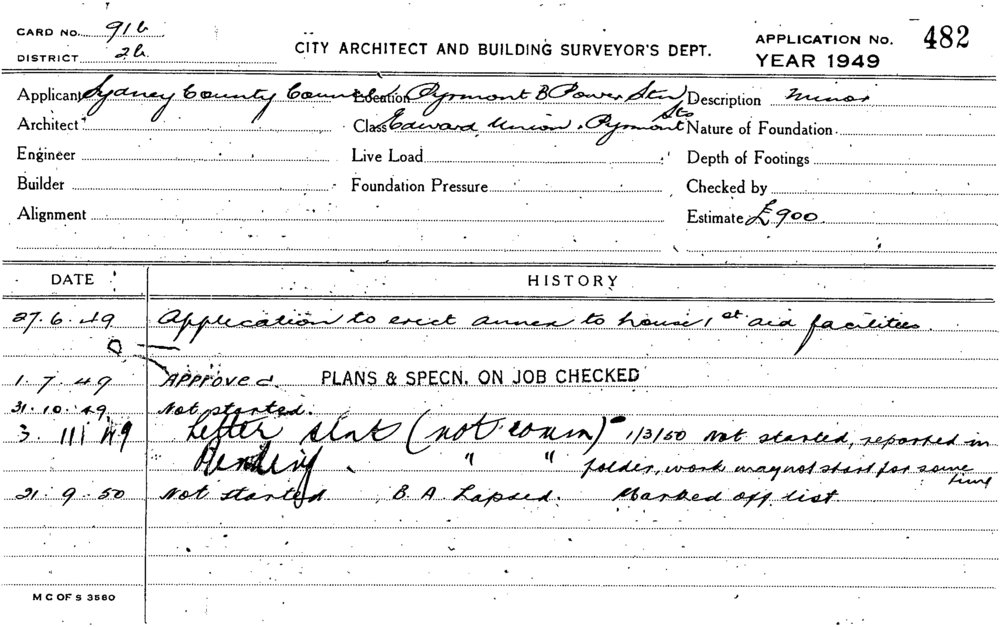 CARD No. 916
DISTRICT 2b
CITY ARCHITECT AND BUILDING SURVEYOR'S DEPT.
APPLICATION No. 482
YEAR 1949
Applicant Sydney County Council Location Pyrmont B Power Stn Description Minor
Architect Class Edward, Union, Pyrmont Sts Nature of Foundation
Engineer Live Load Depth of Footings
Builder Foundation Pressure Checked by
Alignment Estimate £900
DATE HISTORY
27.6.49 Application to erect annex to house 1st aid facilities.
1.7.49 Approved. PLANS & SPECN. ON JOB CHECKED
31.10.49 Not started.
3.111 49 Letter sent (not comm) 1/3/50 Not started, reported in
Pending " " folder, work may not start for some time
21.9.50 Not started B.A. Lapsed. Marked off list.
M C OF S 3580